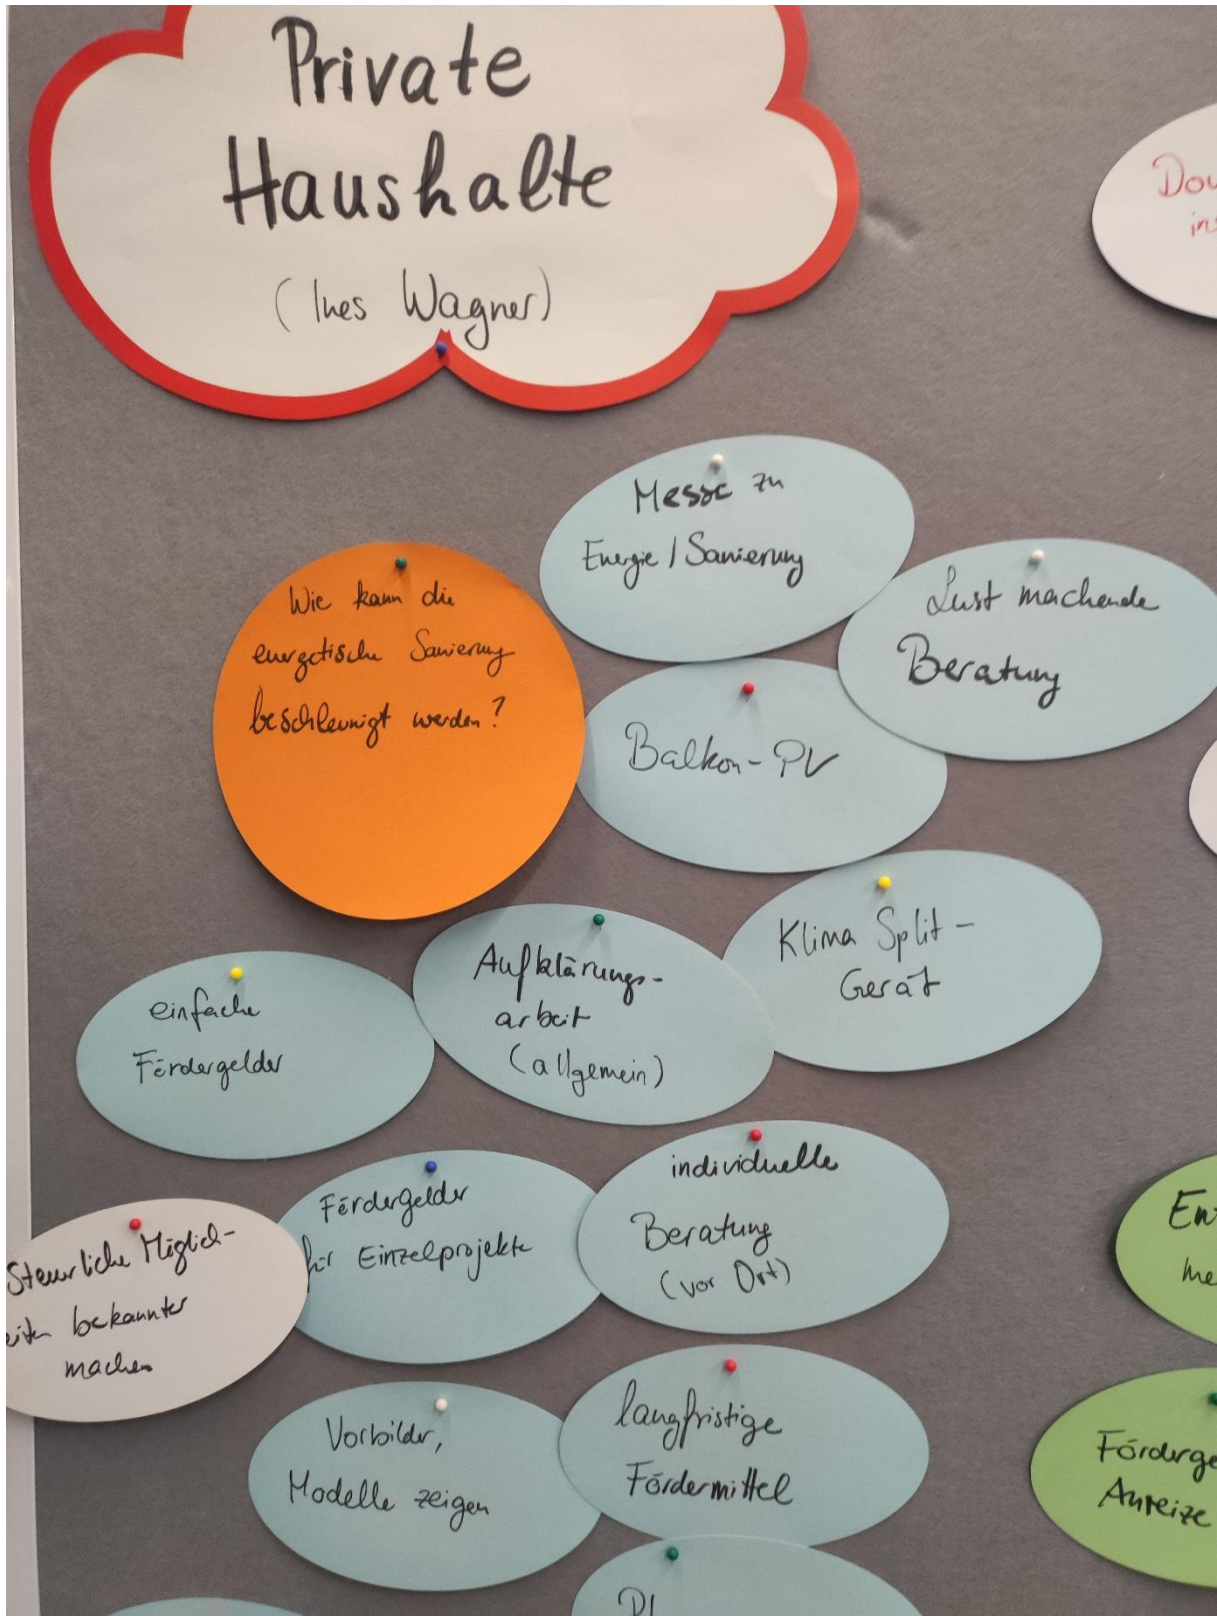 Private
Haushalte
(Ines Wagner)
Messe zu
Energie / Sanierung
Lust machende
Beratung
Wie kann die
energetische Sanierung
beschleunigt werden?
Balkon-PV
Klima Split-
Gerät
Aufklärungs-
arbeit
(allgemein)
einfache
Fördergelder
individuelle
Beratung
(vor Ort)
Fördergelder
für Einzelprojekte
Steuerliche Möglich-
bekannter
machen
langfristige
Fördermittel
Vorbilder,
Modelle zeigen
Anreize